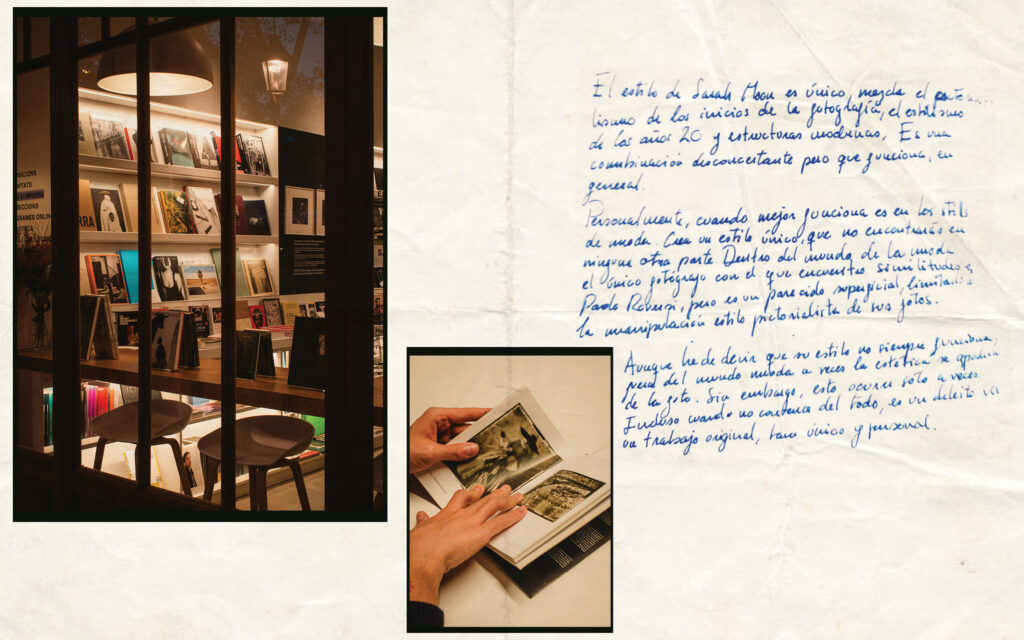 El estilo de Sarah Moon es único, mezcla el
lismo de los inicios de la fotografía, el estilismo
de los años 20 y estructuras modernas. Es una
combinación desconcertante pero que funciona, en
general.
Personalmente, cuando mejor funciona es en los stills
de moda. Crea un estilo único, que no encontrarás en
ninguna otra parte. Dentro del mundo de la moda
el único fotógrafo con el que encuentro similitudes es
Paolo Roversi, pero es un parecido superficial, limitado a
la manipulación estilo pictorialista de sus fotos.
Aunque he de decir que su estilo no siempre funciona,
fuera del mundo moda a veces la estética se apodera
de la foto. Sin embargo, esto ocurre sólo a veces.
Incluso cuando no convence del todo, es un deleite ver
un trabajo original, tan único y personal.
SICIONS
ITATS
ECCIONS
GRAMES ONLIN
OTECA
RRA